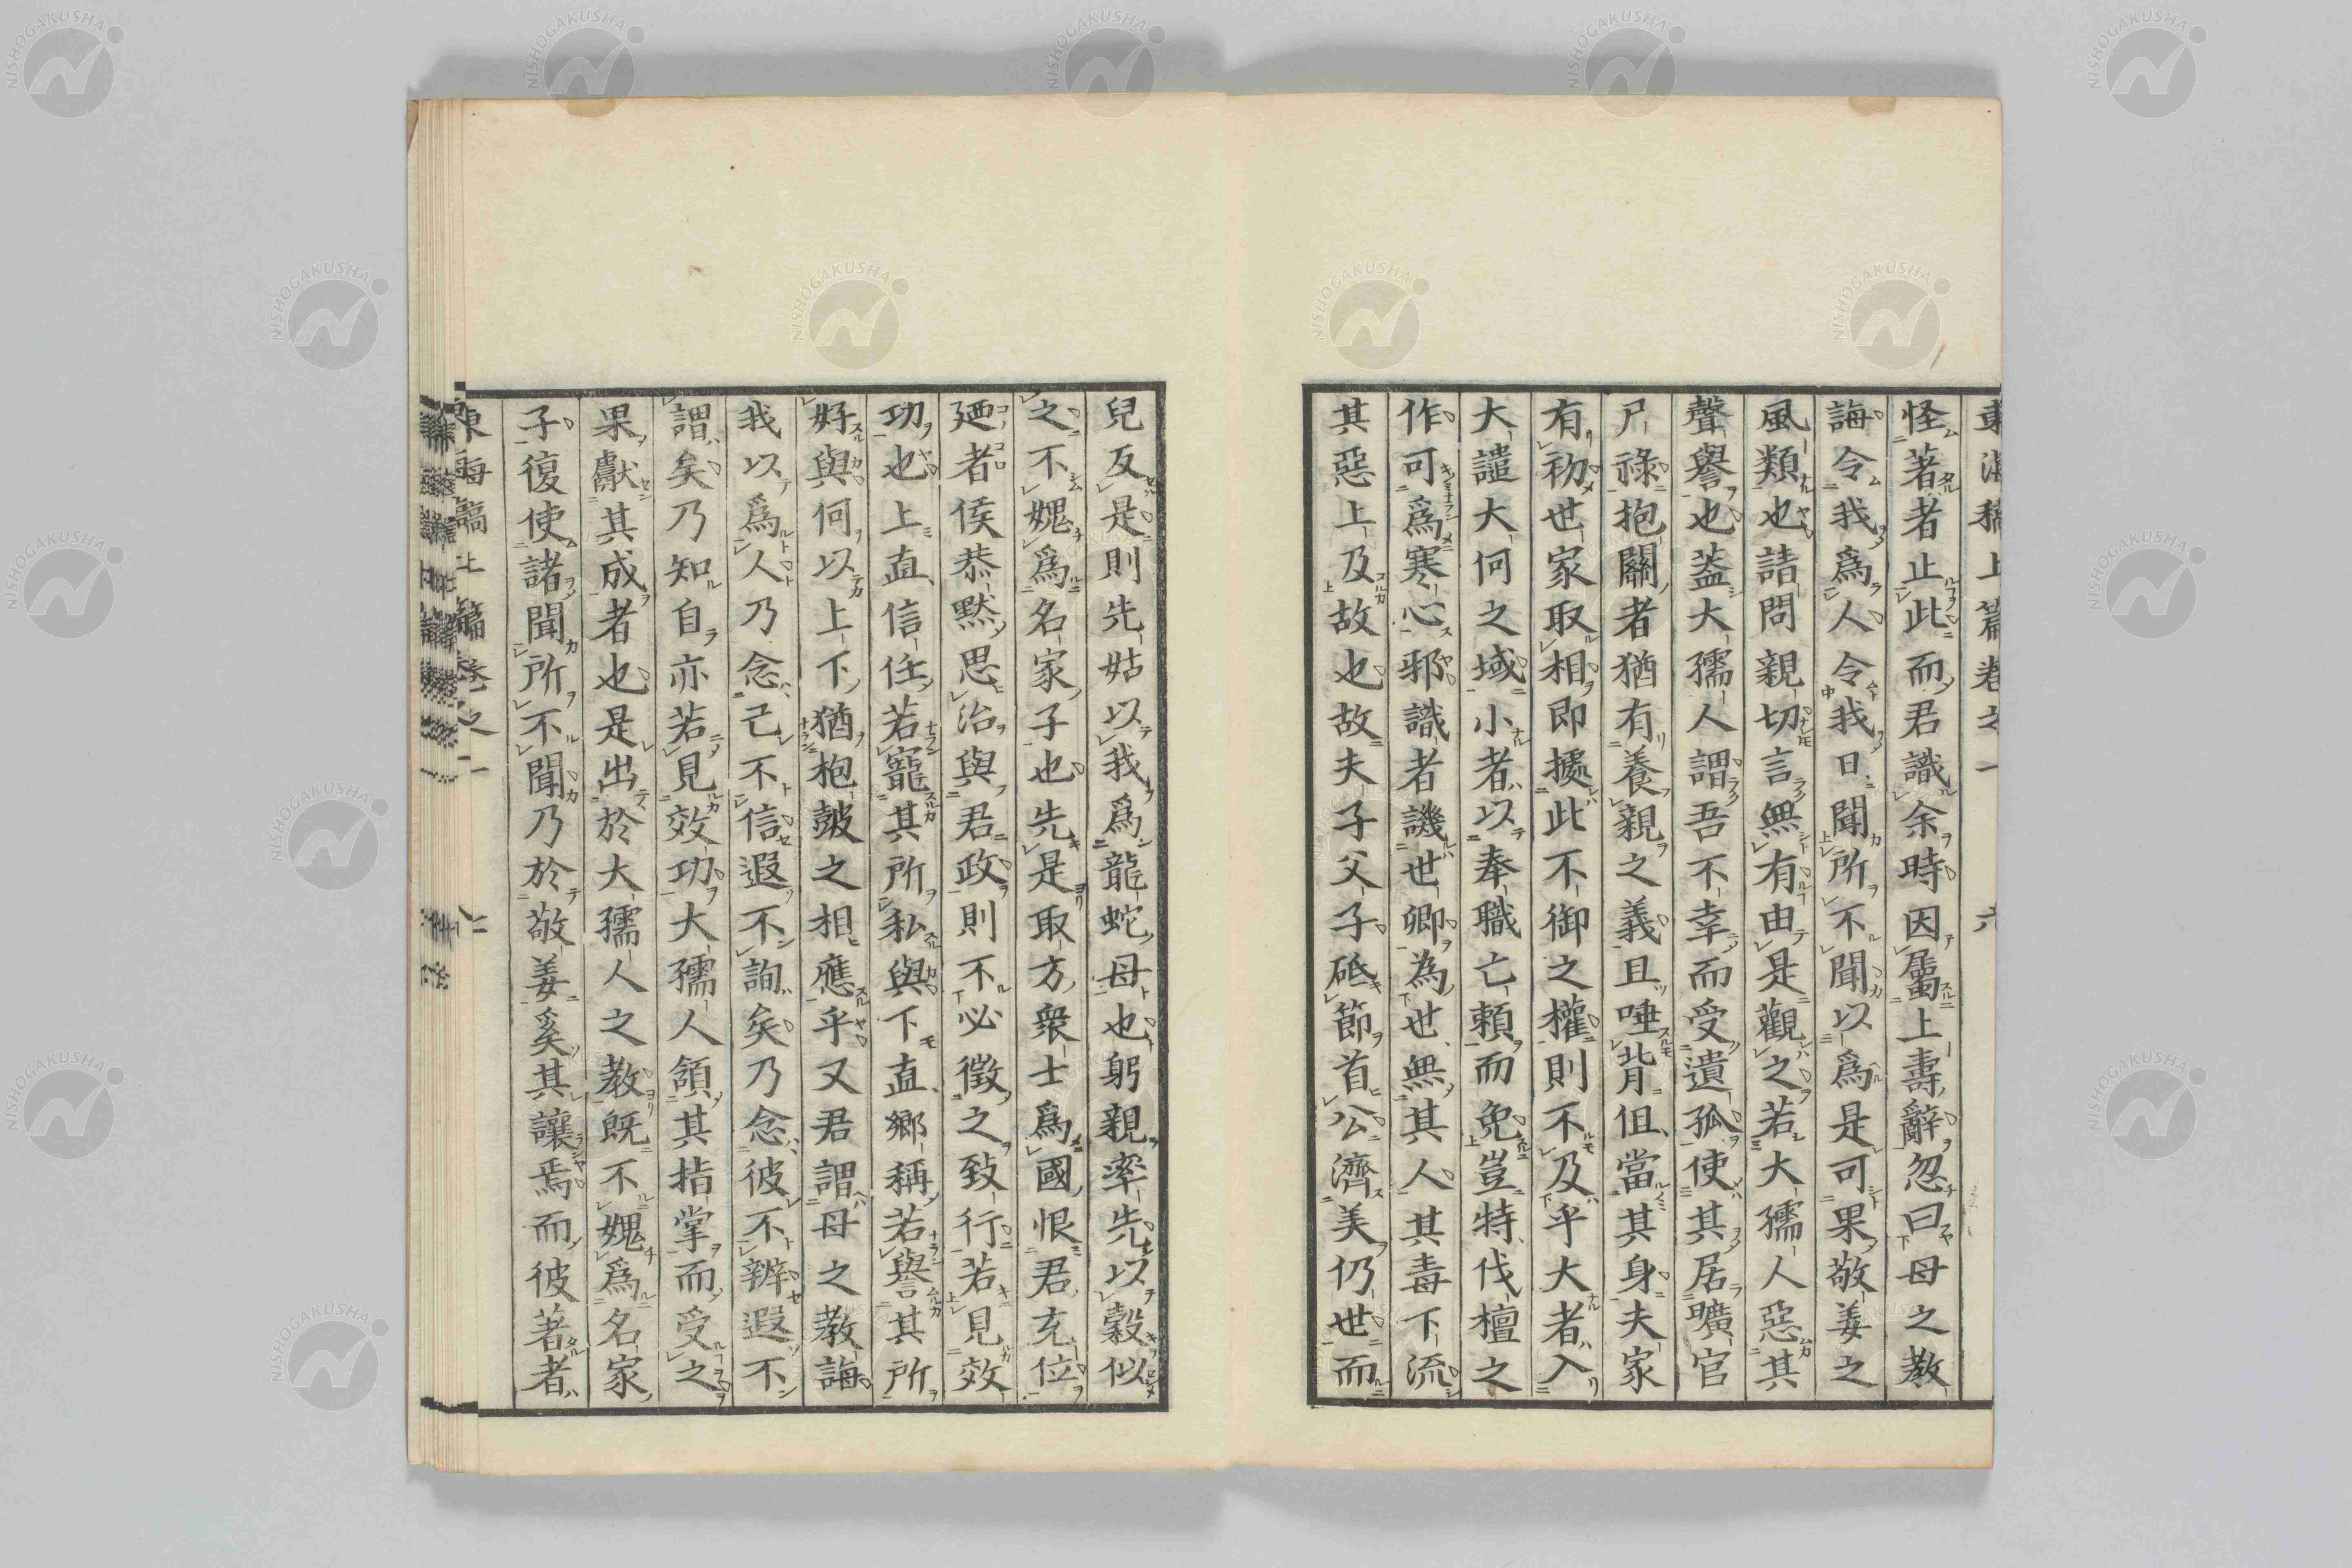 東海稿上篇卷之一 六
怪著者止此而君識余時因屬上壽辭忽曰母之教
誨令我爲人令我日聞所不聞以爲是可果敬姜之
風類也詰問親切言無有由是觀之若大孺人惡其
聲譽也蓋大孺人謂吾不幸而受遺孤使其居曠官
尸祿抱關者猶有養親之義且唾背伹當其身夫家
有初世家取相即據此不御之權則不及乎大者入
大譴大何之域小者以奉職亡賴而免豈特伐檀之
作可爲寒心邪識者譏世卿為世無其人其毒下流
其惡上及故也故夫子父子砥節首公濟美仍世而
兒反是則先姑以我爲龍蛇母也躬親率先以穀似
之不媿爲名家子也先是取方衆士爲國恨君充位
廼者侯恭默思治與君政則不必徵之致行若見效
功也上直信任若寵其所私與下直鄉稱若譽其所
好與何以上下猶枹皷之相應乎又君謂母之教誨
我以爲人乃念己不信遐不詢矣乃念彼不辨遐不
謂矣乃知自亦若見效功大孺人頷其指掌而受之
果獻其成者也是出於大孺人之教既不媿爲名家
子復使諸聞所不聞乃於敬姜奚其讓焉而彼著者
東海稿上篇卷之一